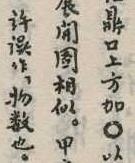 鼎口上方加〇以
展開圖相似。甲
許誤作、物數也。